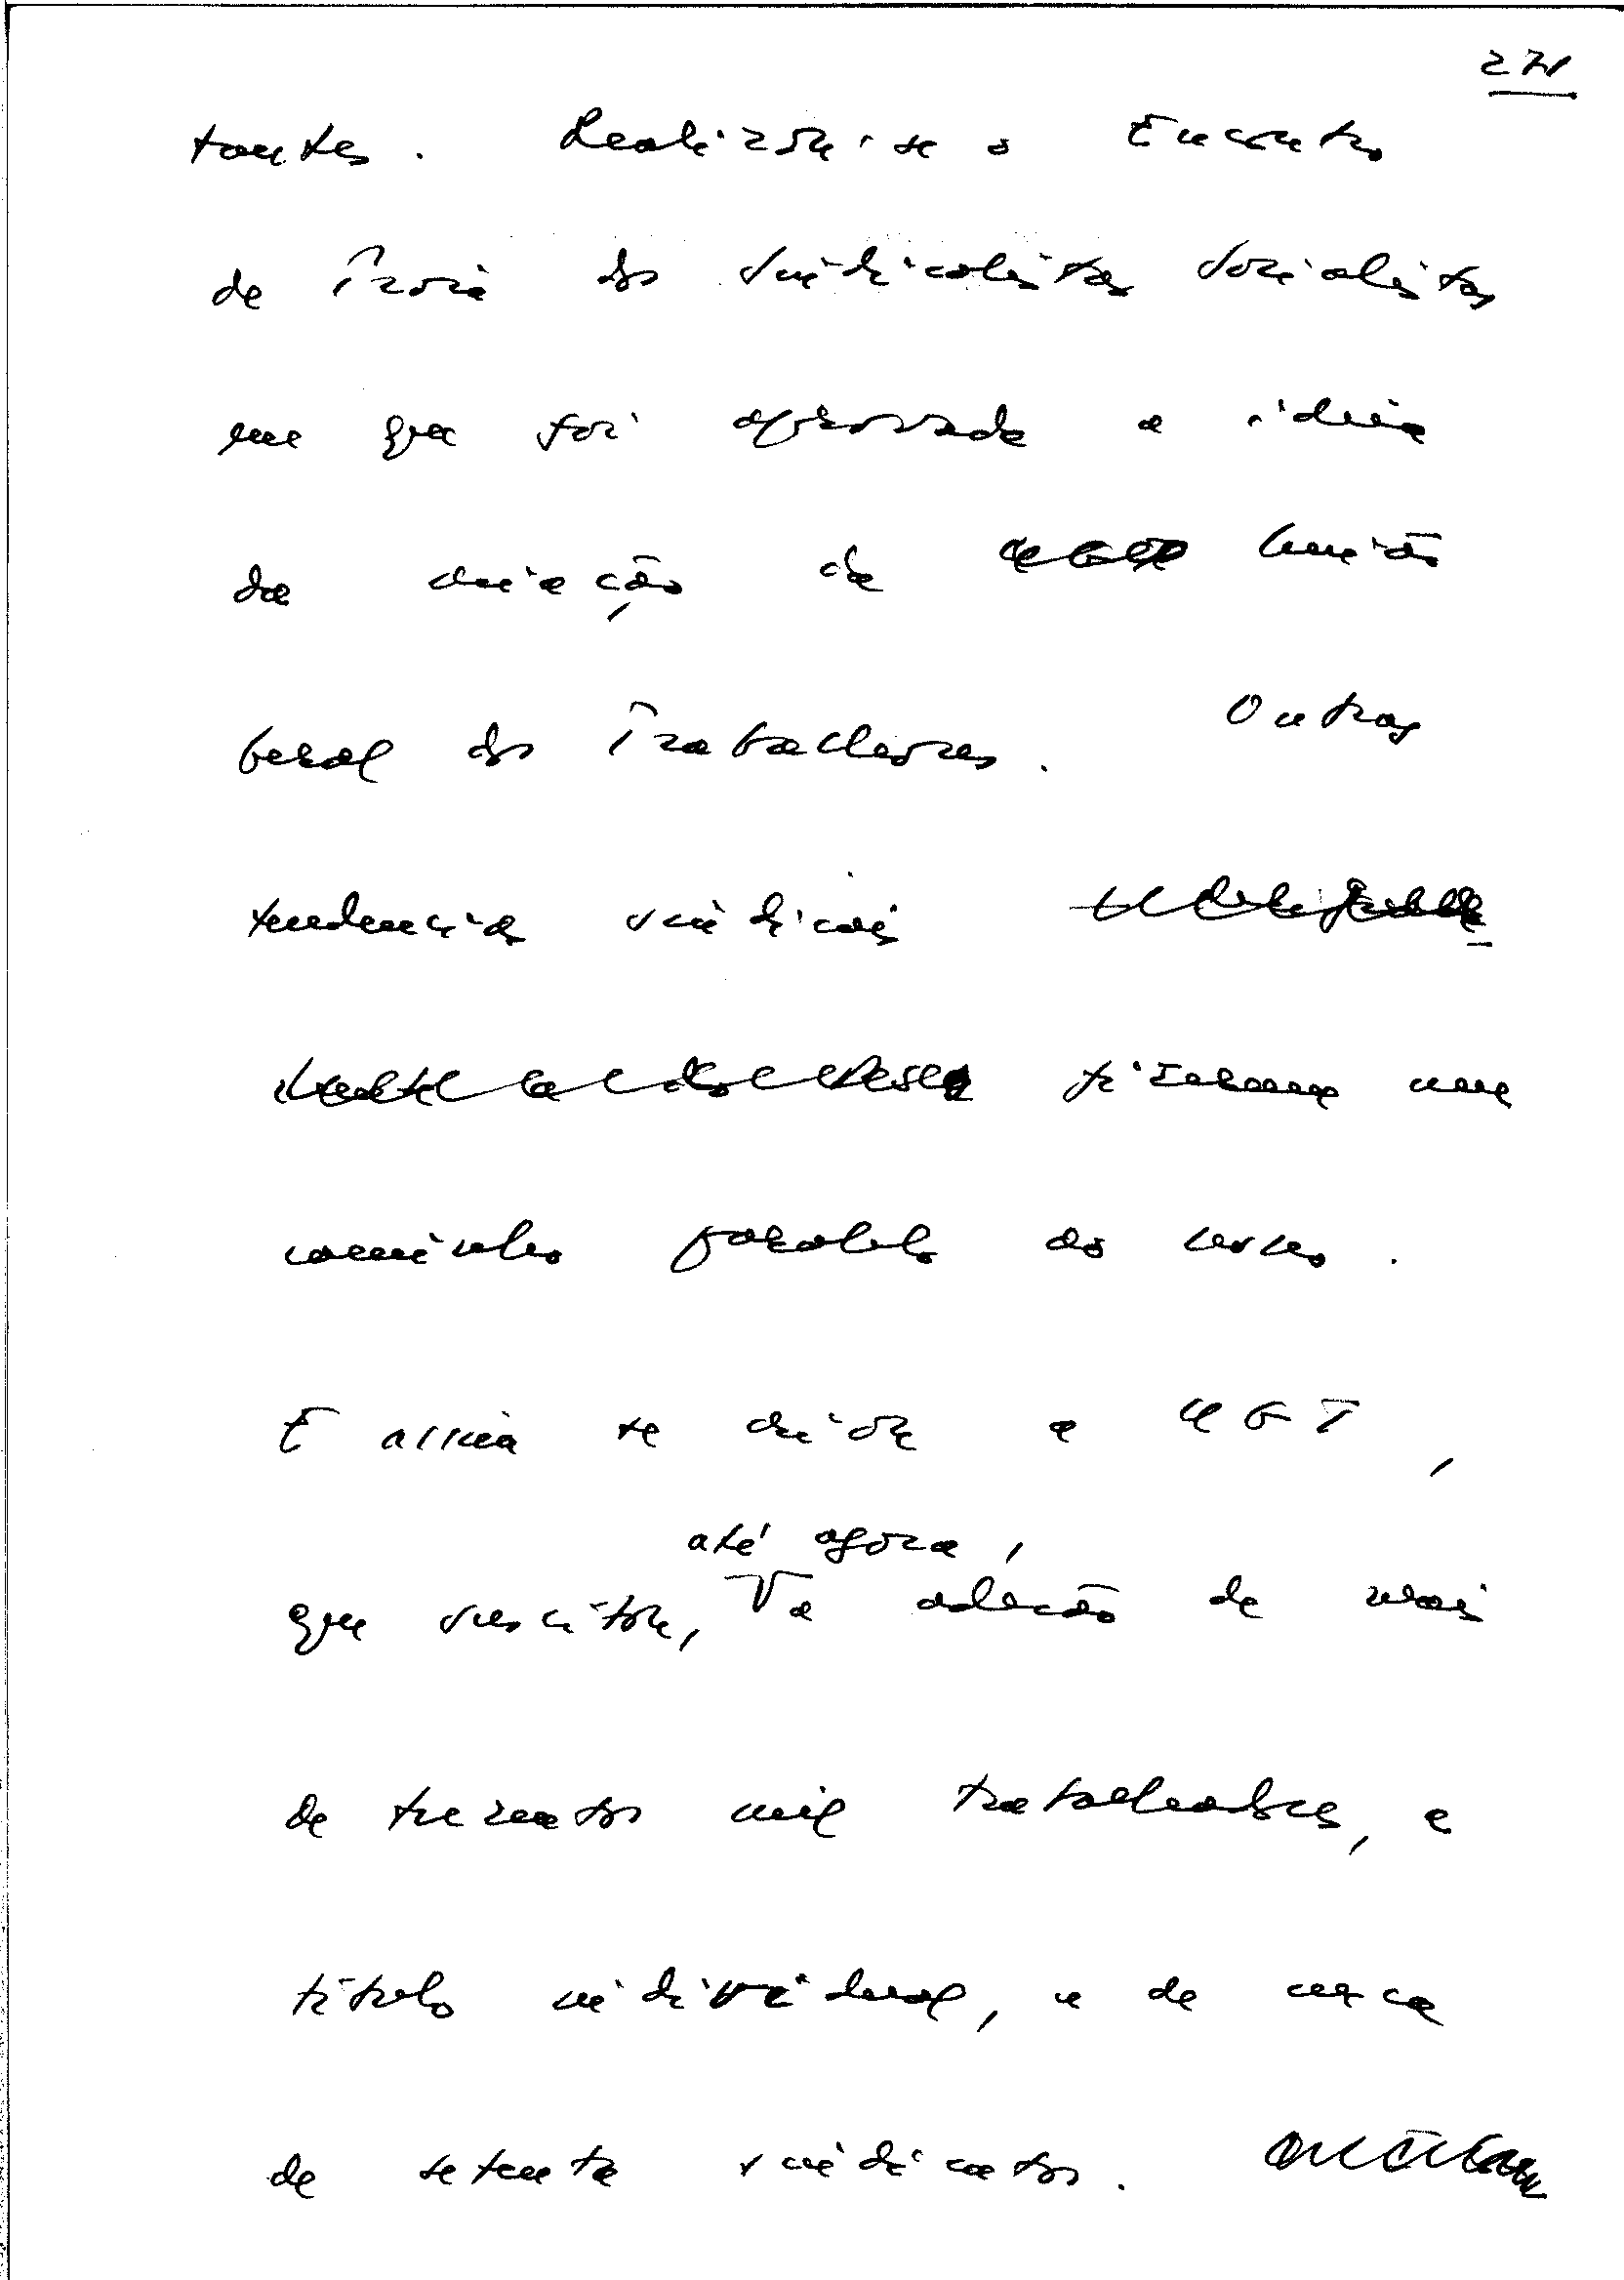 271
tantes. Realizou-se o Encontro
de Tróia dos sindicalistas socialistas
em que foi aprovada a ideia
da criação da União
Geral dos Trabalhadores. Outras
tendencias sindicais
fizeram um
caminho paralelo ao nosso.
E assim se criou a UGT,
até agora,
que suscitou, a adesão de mais
de trezentos mil trabalhadores, a
título individual, e de cerca
de setenta sindicatos.